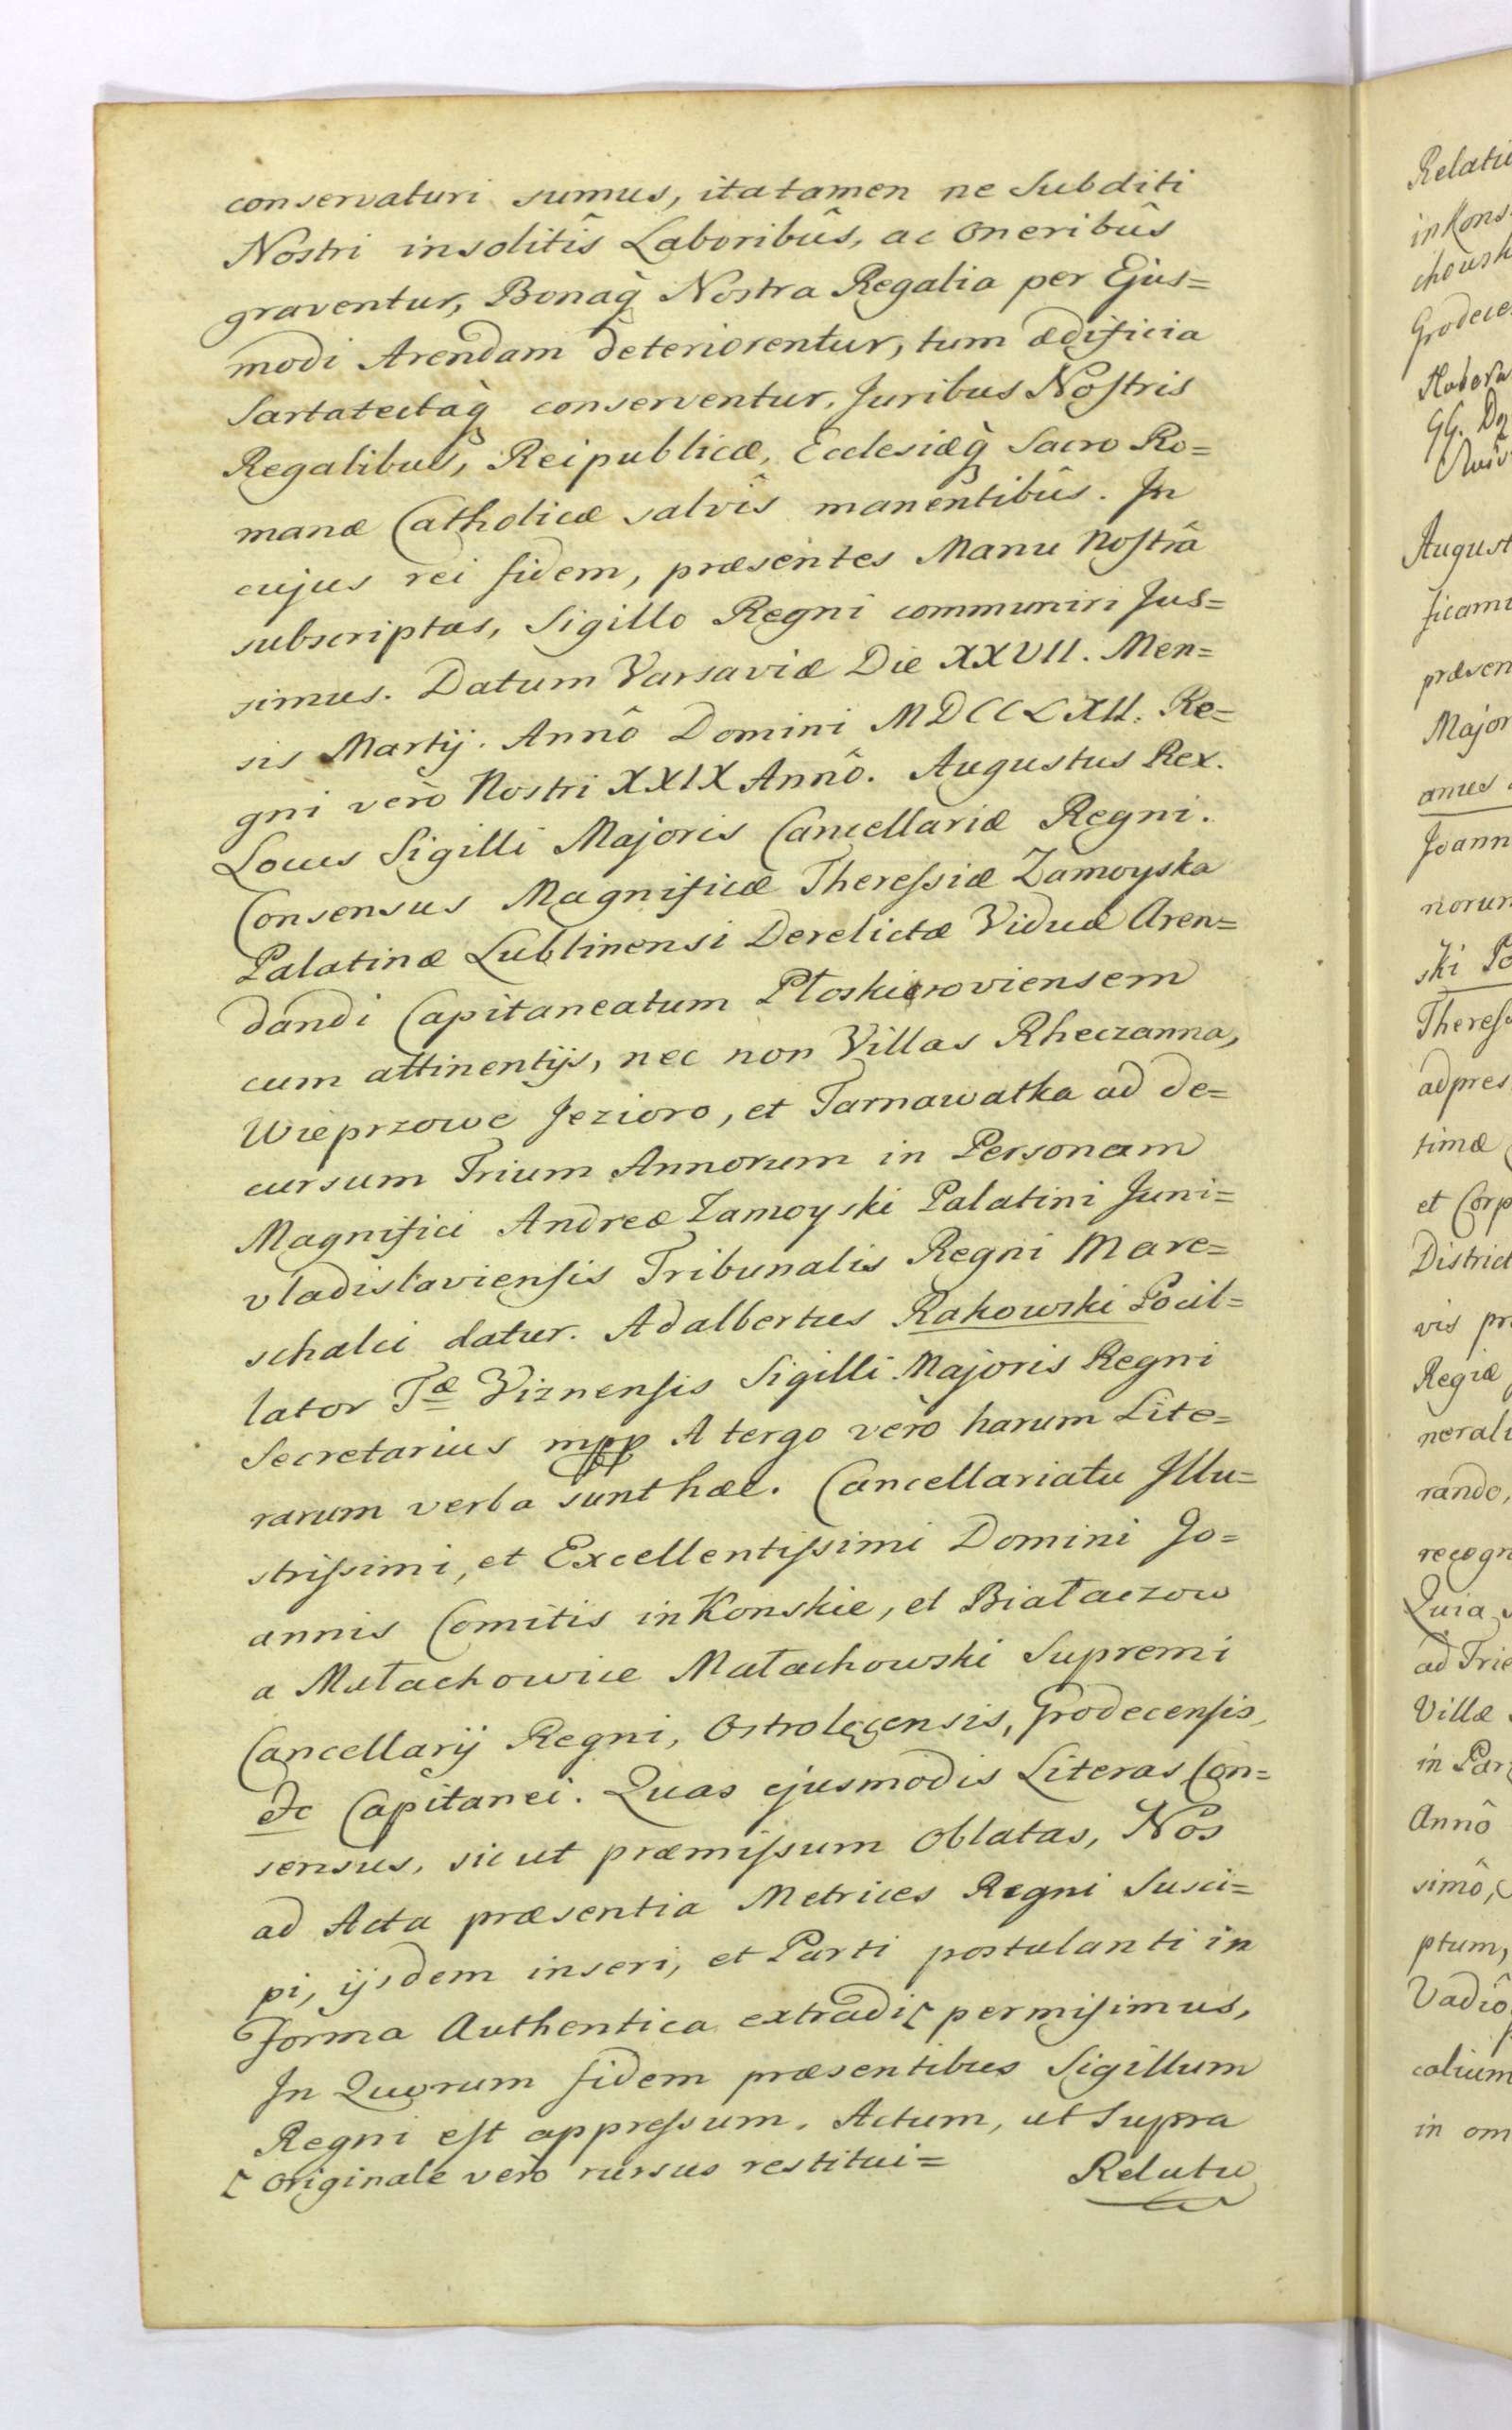 conservaturi sumus, itatamen ne Subditi
Nostri insolitîs Laboribûs, ac Oneribûs
graventur, Bonaq̀ Nostra Regalia per Ejus=
modi Arendam deteriorentur, tum ædificia
Sartatectaq̀ conserventur. Juribus Noſtris
Regalibus, Reipublicæ, Ecclesiæq̀ Sacro Ro=
manæ Catholicæ salvîs manentibûs. In
cujus rei fidem, præsentes Manu Noſtrâ
subscriptas, Sigillo Regni communiri Jus=
simus. Datum Varsaviæ Die XXVII. Men=
sis Martij. Annô Domini MDCCLXII. Re=
gni verò Nostri XXIX Annô. Augustus Rex.
Locus Sigilli Majoris Cancellariæ Regni.
Consensus Magnificæ Thereſsiæ Zamoyska
Palatinæ Lublinensi Derelictæ Viduæ Aren=
dandi Capitaneatum Płoskiroviensem
cum attinentijs, nec non Villas Rheczanna,
Wieprzowe Jezioro, et Tarnawatka ad de=
cursum Trium Annorum in Personam
Magnifici Andreæ Zamoyski Palatini Juni=
vladislavienſis Tribunalis Regni Mare=
schalci datur. Adalbertus Rakowski Pocil=
lator Tæ Viznenſis Sigilli Majoris Regni
Secretarius mpp A tergo verò harum Lite=
rarum verba sunt hæc. Cancellariatu Illu=
striſsimi, et Excellentiſsimi Domini Jo=
annis Comitis in Konskie, et Białaczow
a Małachowice Małachowski Supremi
Cancellarij Regni, Ostrolęcensis, Grodecenſis,
etc Capitanei. Quas ejusmodis Literas Con=
sensus, sicut præmiſsum oblatas, Nos
ad Acta præsentia Metrices Regni Susci=
pi, ijsdem inseri, et Parti postulanti in
Forma Authentica extradi ⁊ permiſimus,
In Quorum fidem præsentibus Sigillum
Regni eſt appreſsum. Actum, ut Supra
⁊ Originale verò rursus restitui=
Relatio
Relati
in Kons
chowsk
Grodece
August
ficamu
præsen
Major
Joann
norum
ski Po
Thereſs
adpres
timæ
et Corp
District
vis pr
Regiæ
nerali
rando,
recogn
Quia
ad Trie
Villæ
in Par
Annô
simô,
ptum,
Vadiô
calium
in om